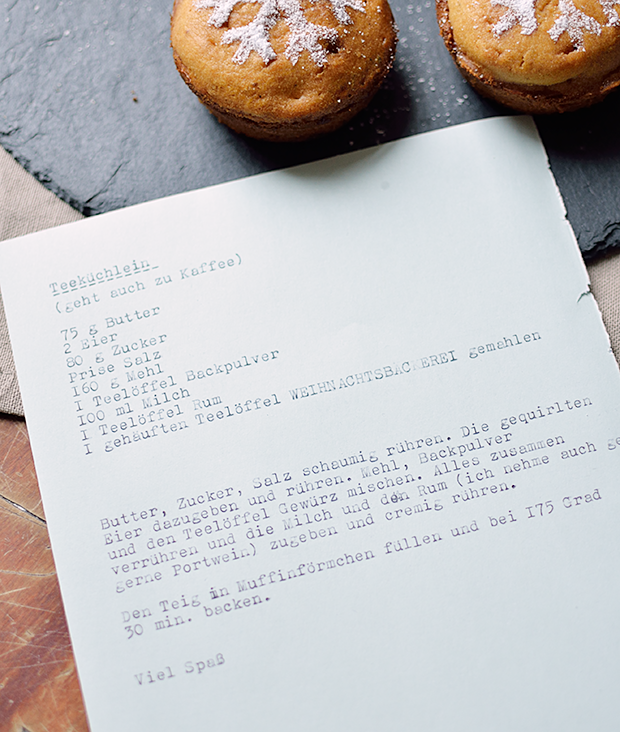 Teeküchlein
(geht auch zu Kaffee)
75 g Butter
2 Eier
80 g Zucker
Prise Salz
I60 g Mehl
I Teelöffel Backpulver
I00 ml Milch
I Teelöffel Rum
I gehäuften Teelöffel WEIHNACHTSBÄCKEREI gemahlen
Butter, Zucker, Salz schaumig rühren. Die gequirlten
Eier dazugeben und rühren. Mehl, Backpulver
und den Teelöffel Gewürz mischen. Alles zusammen
verrühren und die Milch und den Rum (ich nehme auch ge
gerne Portwein) zugeben und cremig rühren.
Den Teig in Muffinförmchen füllen und bei I75 Grad
30 min. backen.
Viel Spaß